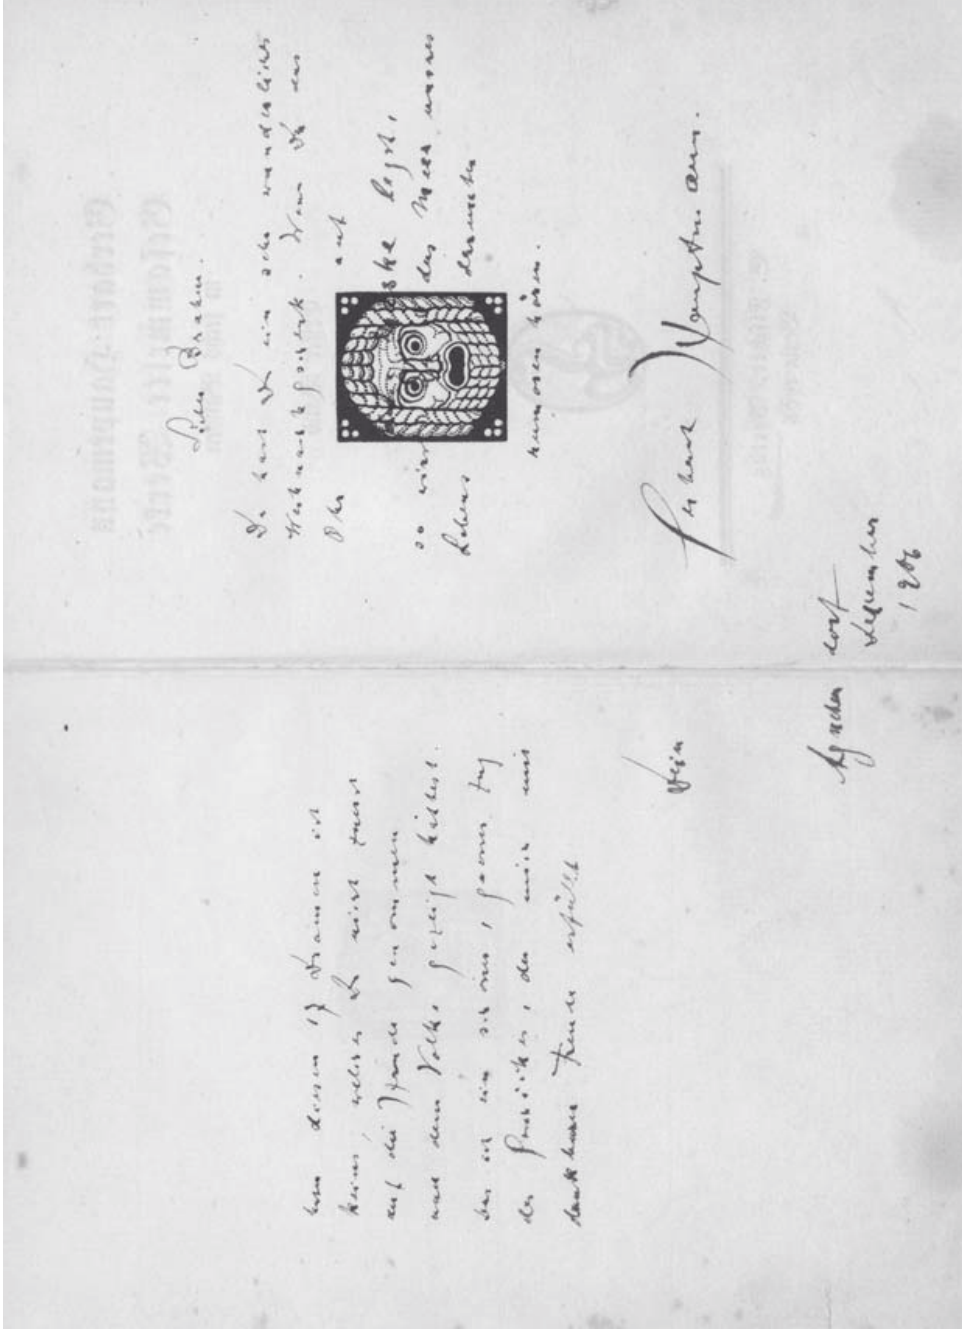 Lieber Brahm.
Du hast da ein sehr wunderliches
Weihnachtsgeschenk. Wenn Du das
Ohr auf
ske legst,
so wirst das Meer unseres
Lebens darunter
rumoren hören.
Von diesen 17 Dramen ist
keines, welches Du nicht zuerst
auf die Hände genommen
und dem Volke gezeigt hättest.
Das ist ein schöner, ganzer Zug
des Geschickes, der mich mit
dankbarer Freude erfüllt
Dein Gerhart Hauptmann.
Agnetendorf
Dezember
1906